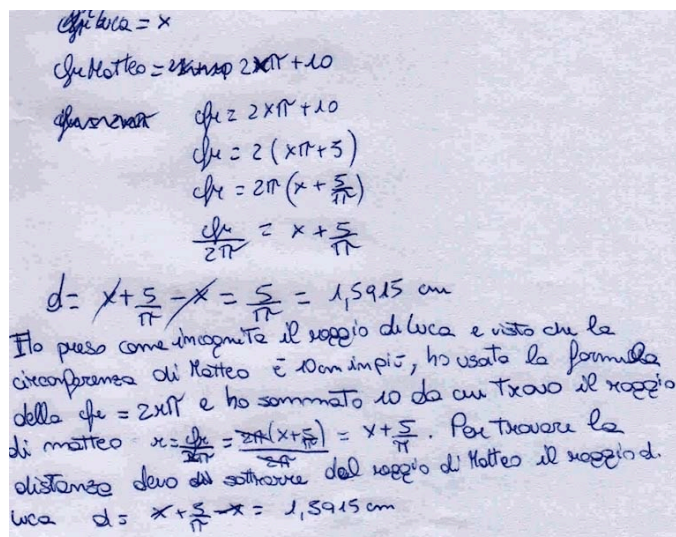 Luca = x
cfr Matteo = 2xπ+10
cfr = 2xπ+10
cfr = 2(xπ+5)
cfr = 2π(x+5/π)
cfr/2π = x+5/π
d= x+5/π-x = 5/π = 1,5915 cm
Ho preso come incognita il raggio di Luca e visto che la
circonferenza di Matteo è 10cm in più, ho usato la formula
della cfr = 2rπ e ho sommato 10 da cui trovo il raggio
di matteo r=cfr/2π=2π(x+5/π)/2π = x+5/π. Per trovare la
distanza devo sottrarre dal raggio di Matteo il raggio d.
luca d= x+5/π-x= 1,5915 cm